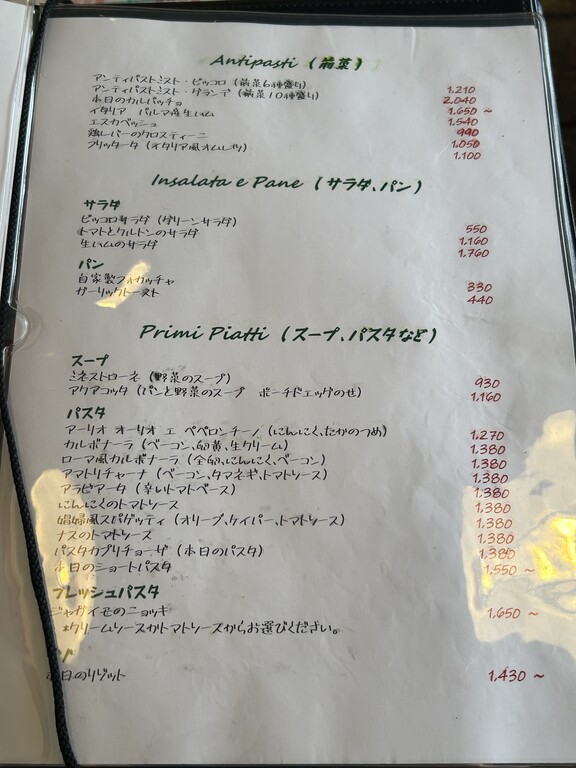 Antipasti (前菜)
アンティパストミスト・ピッコロ (前菜6種盛り) 1,210
アンティパストミスト・グランデ (前菜10種盛り) 2,040
本日のカルパッチョ 1,650 ~
イタリア パルマ産生ハム 1,540
エスカベッシュ 990
鶏レバーのクロスティーニ 1,050
フリッタータ (イタリア風オムレツ) 1,100
Insalata e Pane (サラダ、パン)
サラダ
ピッコロサラダ (グリーンサラダ) 550
トマトとクルトンのサラダ 1,160
生ハムのサラダ 1,760
パン
自家製フォカッチャ 330
ガーリックトースト 440
Primi Piatti (スープ、パスタなど)
スープ
ミネストローネ (野菜のスープ) 930
アクアコッタ (パンと野菜のスープ ポーチドエッグのせ) 1,160
パスタ
アーリオ オーリオ エ ペペロンチーノ (にんにく、たかのつめ) 1,270
カルボナーラ (ベーコン、卵黄、生クリーム) 1,380
ローマ風カルボナーラ (全卵、にんにく、ベーコン) 1,380
アマトリチャーナ (ベーコン、タマネギ、トマトソース) 1,380
アラビアータ (辛いトマトベース) 1,380
にんにくのトマトソース 1,380
娼婦風スパゲッティ (オリーブ、ケイパー、トマトソース) 1,380
ナスのトマトソース 1,380
パスタカプリチョーザ (本日のパスタ) 1,380
本日のショートパスタ 1,550 ~
フレッシュパスタ
ジャガイモのニョッキ 1,650 ~
*クリームソースかトマトソースからお選びください。
本日のリゾット 1,430 ~